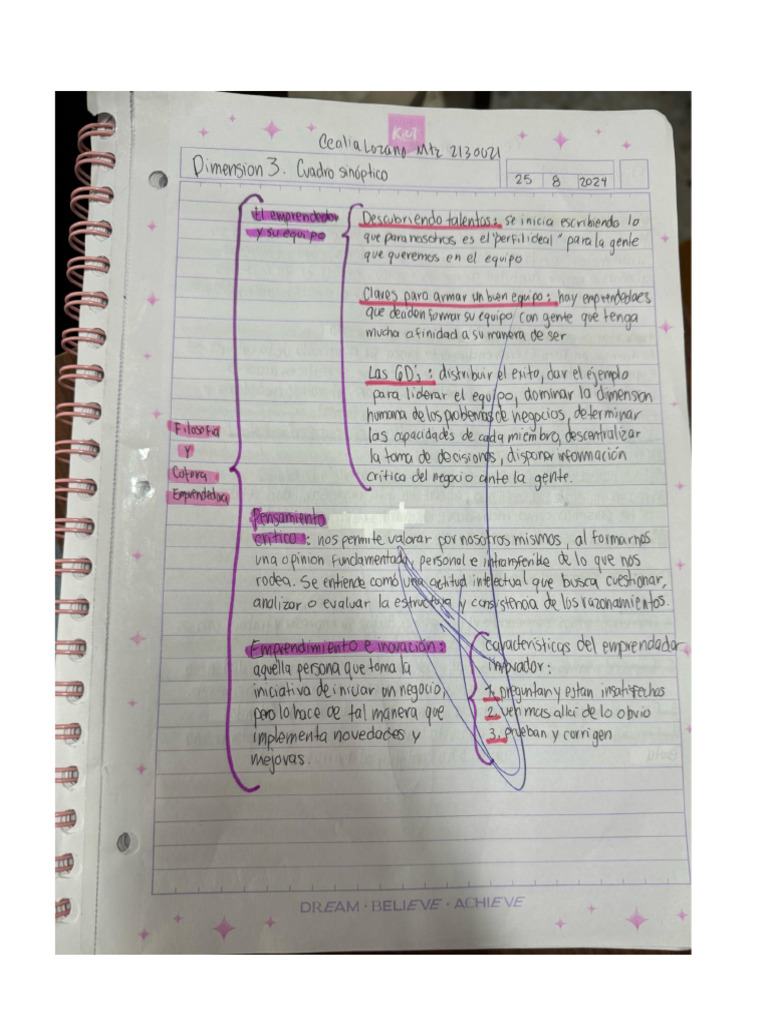 KUT
Cealia Lozano Mtz 2130021
Dimension 3. Cuadro sinóptico
25 8 2024
El emprendedor
y su equipo
Descubriendo talentos: se inicia escribiendo lo
que para nosotros es el "perfil ideal" para la gente
que queremos en el equipo
Claves para armar un buen equipo: hay emprendedores
que deciden formar su equipo con gente que tenga
mucha afinidad a su manera de ser
Las 6D's: distribuir el exito, dar el ejemplo
para liderar el equipo, dominar la dimension
humana de los problemas de negocios, determinar
las capacidades de cada miembro, descentralizar
la toma de decisiones, disponer información
critica del negocio ante la gente.
Filosofia
y
Cotura
Emprendedora
Pensamiento
critico: nos permite valorar por nosotros mismos, al formarnos
una opinion fundamentada, personal e intransferible de lo que nos
rodea. Se entiende como una actitud intelectual que busca cuestionar,
analizar o evaluar la estructura y consistencia de los razonamientos.
Emprendimiento e inovación:
aquella persona que toma la
iniciativa de iniciar un negocio,
pero lo hace de tal manera que
implementa novedades y
mejoras.
características del emprendador
innovador:
1. preguntan y estan insatisfechos
2. ven mas allá de lo obvio
3. prueban y corrigen
DREAM · BELIEVE · ACHIEVE